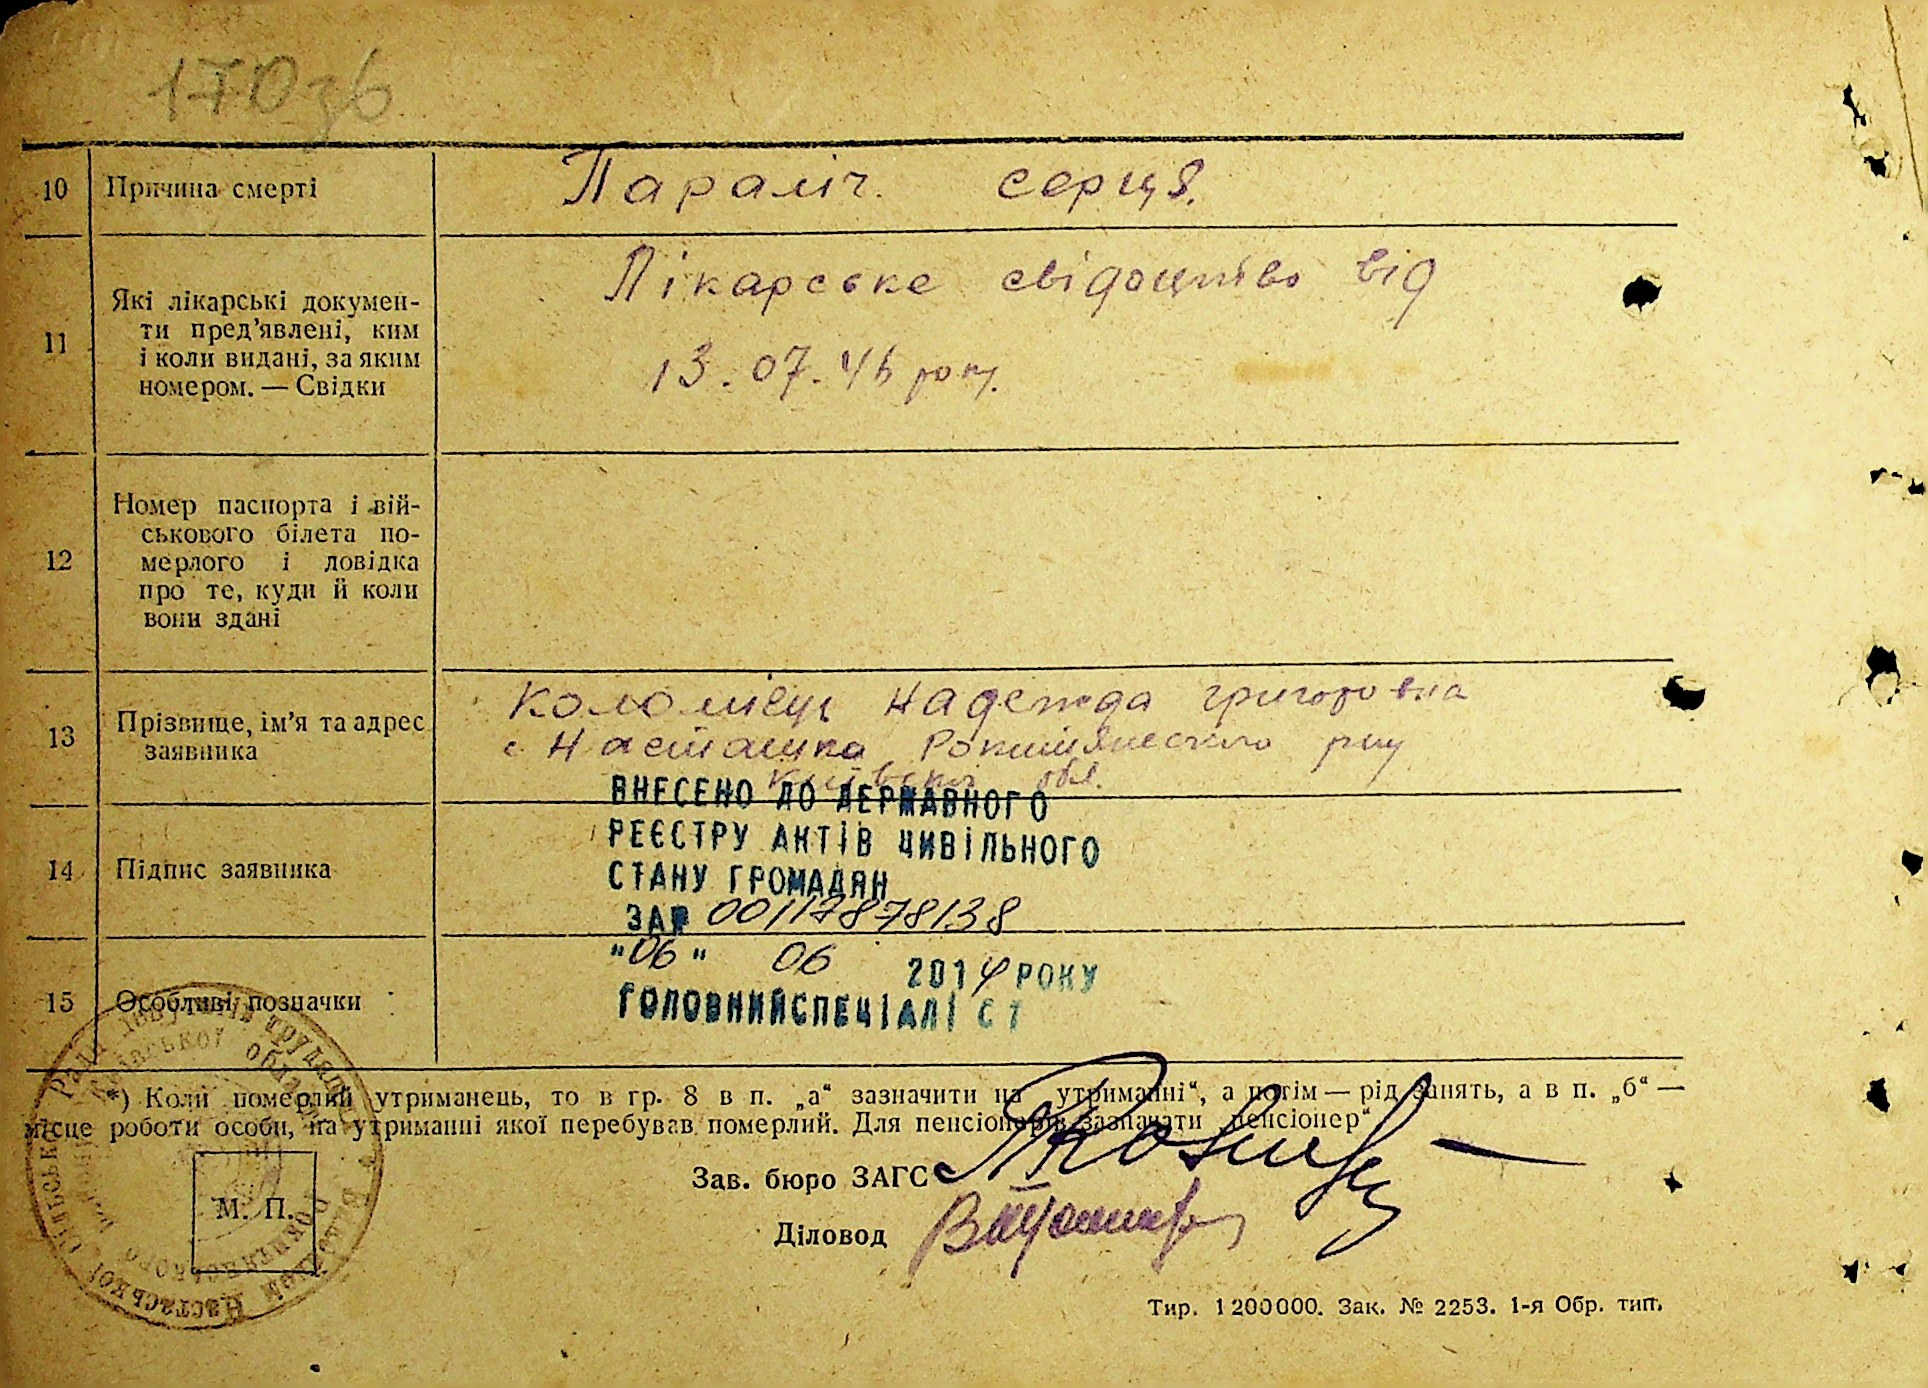 170зв
10 Причина смерті Параліч. серця.
11 Які лікарські докумен-
ти пред’явлені, ким
і коли видані, за яким
номером. — Свідки
Лікарське свідоцтво від
13.07.46 року.
12 Номер паспорта і вій-
ськового білета по-
мерлого і довідка
про те, куди й коли
вони здані
13 Прізвище, ім’я та адрес
заявника
Коломиец Надежда Григоровна
с Насташка Рокитянского р-ну
обл.
ВНЕСЕНО ДО ДЕРЖАВНОГО
РЕЄСТРУ АКТІВ ЦИВІЛЬНОГО
СТАНУ ГРОМАДЯН
ЗА№ 00117878138
"06" 06 2014 РОКУ
ГОЛОВНИЙСПЕЦІАЛІСТ
14 Підпис заявника
15 Особливі позначки
*) Коли померлий утриманець, то в гр. 8 в п. „а“ зазначити на утриманні“, а потім — рід занять, а в п. „б“ —
місце роботи особи, на утриманні якої перебував померлий. Для пенсіонерів зазначати „пенсіонер“
Зав. бюро ЗАГС
Діловод
М. П.
Тир. 1200000. Зак. № 2253. 1-я Обр. тип.